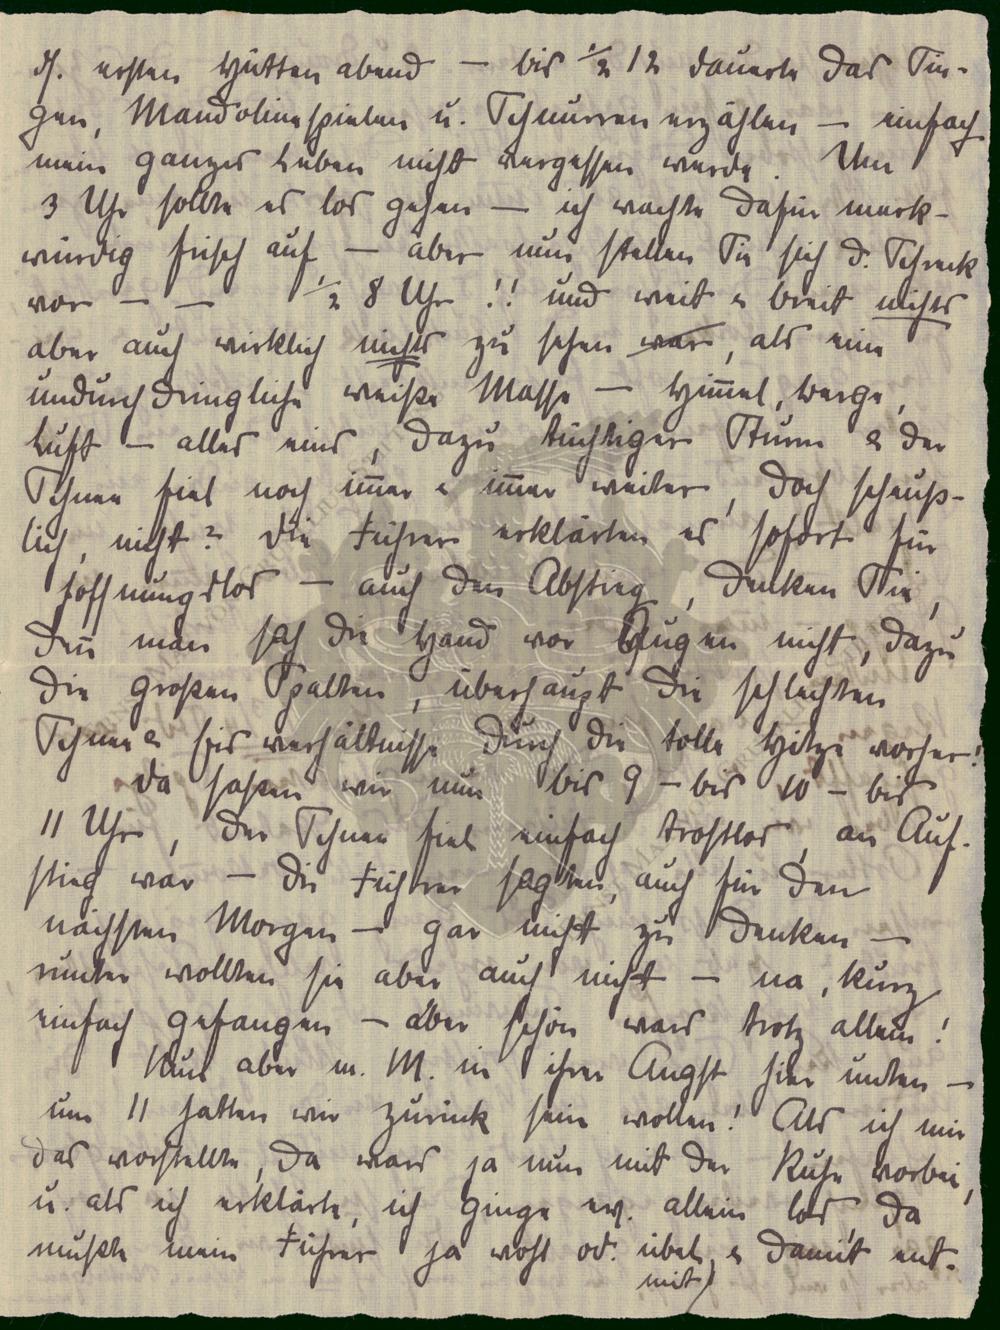 ds. ersten Hüttenabend — bis ½ 12 dauerte das Sin-
gen, Mandolinespielen u. Schnurrenerzählen — einfach
mein ganzes Leben nicht vergessen werde. Um
3 Uhr sollte es los gehen — ich wachte dafür merk-
würdig frisch auf — aber nun stellen Sie sich d. Schreck
vor — — ½ 8 Uhr !! und weit & breit nichts
aber auch wirklich nichts zu sehen war, als eine
undurchdringliche weiße Masse — Himmel, Berge,
Luft — alles eins, dazu tüchtiger Sturm & der
Schnee fiel noch im̅er & im̅er weiter, doch scheuß-
lich, nicht? Die Führer erklärten es sofort für
hoffnungslos — auch den Abstieg, denken Sie,
den̅ man sah die Hand vor Augen nicht, dazu
die großen Spalten, überhaupt die schlechten
Schnee & Eisverhältnisse durch die tolle Hitze vorher!
Da saßen wir nun bis 9 — bis 10 — bis
11 Uhr, der Schnee fiel einfach trostlos, an Auf-
stieg war — die Führer sagten, auch für den
nächsten Morgen — gar nicht zu denken —
runter wollten sie aber auch nicht — na, kurz
einfach gefangen — aber schön wars trotz allem!
Nun aber m. M. in ihrer Angst hier unten —
um 11 hatten wir zurück sein wollen! Als ich mir
das vorstellte, da wars ja nun mit der Ruhe vorbei,
u. als ich erklärte, ich ginge ev. allein los, da
mußte mein Führer ja wohl od. übel & damit ent-
mit